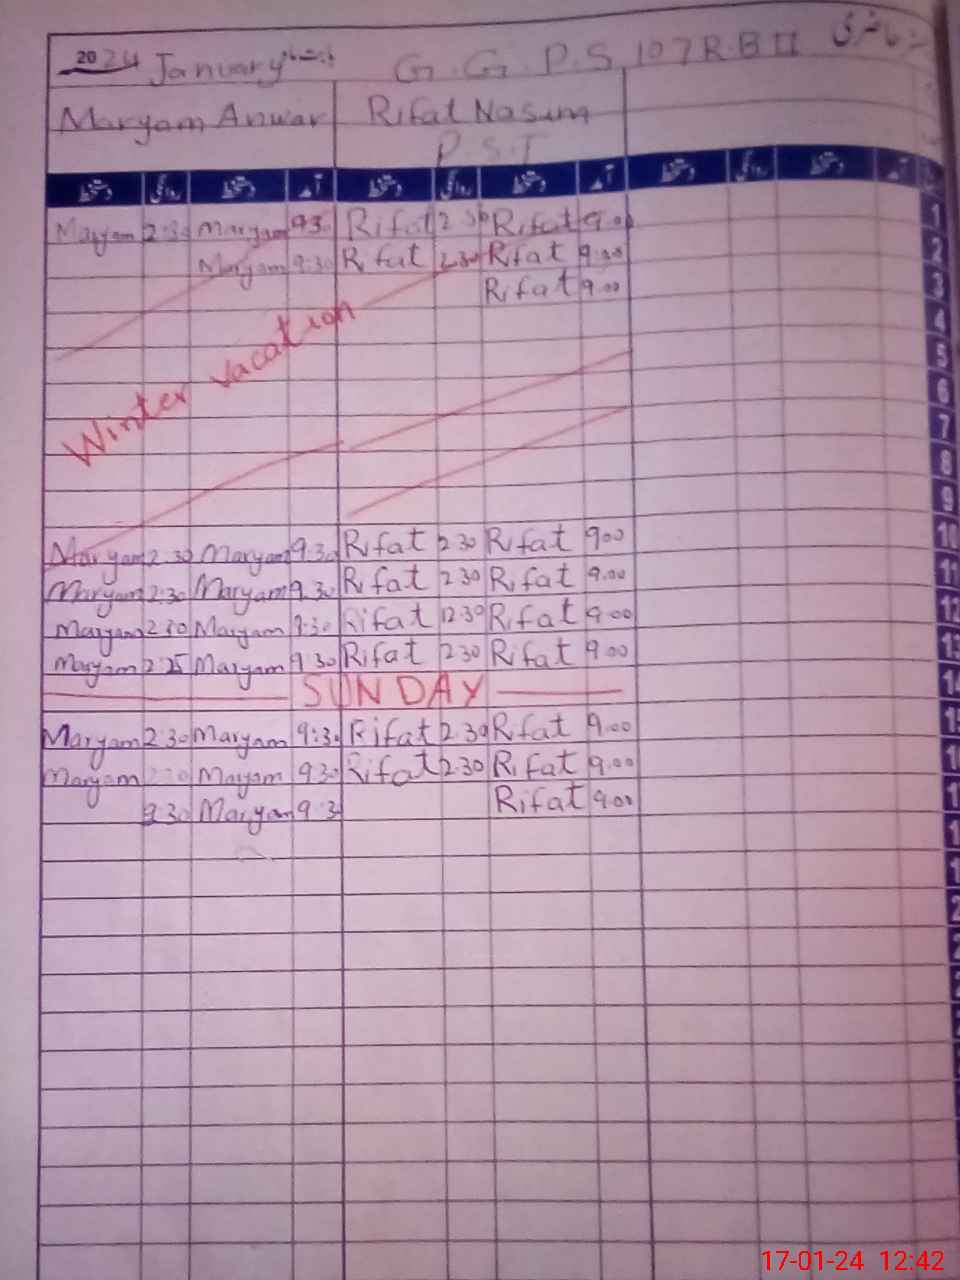 2024 January G.G.P.S 107 R.B II
Maryam Anwar Rifat Nasim
P.S.T
دستخط روانگی دستخط آمد دستخط روانگی دستخط آمد دستخط روانگی دستخط آمد
Maryam 2:30 Maryam 930 Rifat 230 Rifat 9.00 1
Maryam 9:30 Rifat 230 Rifat 9:00 2
Rifat 9.00 3
4
5
6
Winter vacation
7
8
9
Maryam 2:30 Maryam 9:30 Rifat 230 Rifat 900 10
Maryam 2:30 Maryam 9.30 Rifat 230 Rifat 9.00 11
Maryam 2:30 Maryam 9:30 Rifat 230 Rifat 9.00 12
Maryam 2:25 Maryam 930 Rifat 230 Rifat 900 13
SUNDAY 14
Maryam 2:30 Maryam 9:30 Rifat 2.30 Rifat 9.00
Maryam Maryam 930 Rifat 230 Rifat 9.00
9:30 Maryam 9:3 Rifat 9.00
17-01-24 12:42